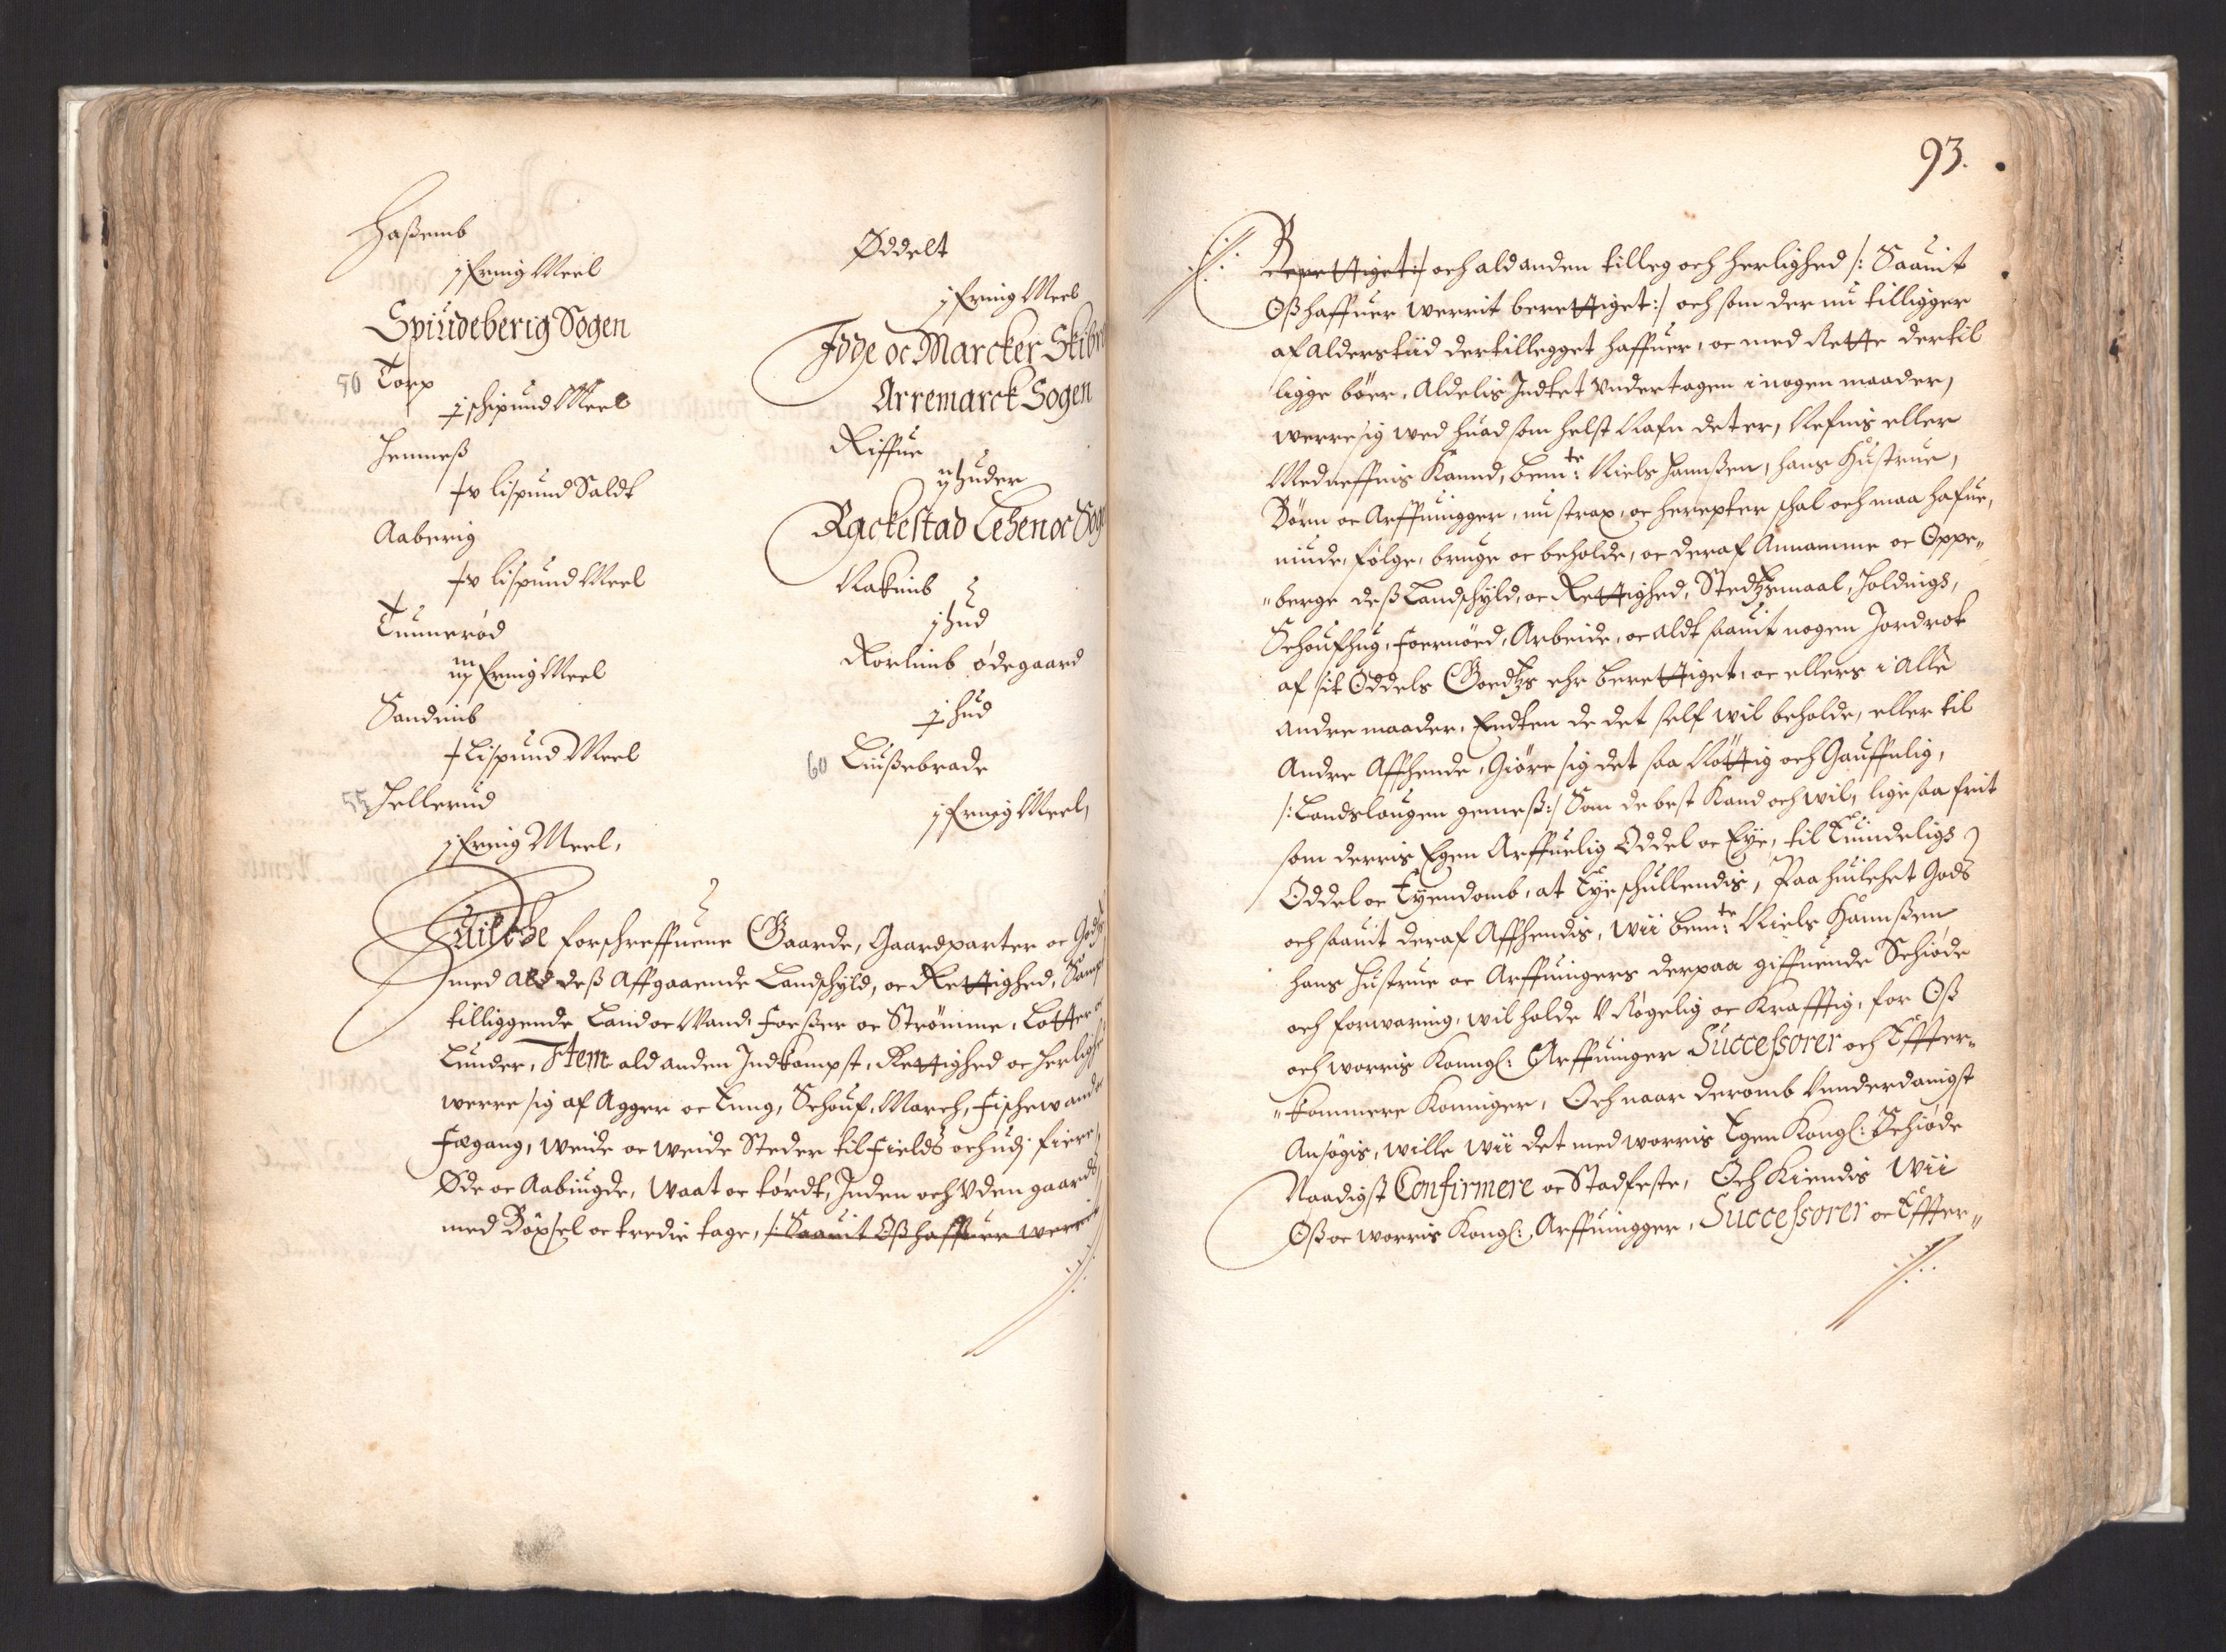 Haßemb
j fring Meel
Spiudeberig Sogen
50 Torp
j schipund Meel
Hemneß
x lispund Saldt
Aaberig
x lispund Meel
Tunnerød
iij fring Meel
Sandumb
Lispund Meel
55 Hellerud
j fring Meel,
Øddelt
j fring Meel
Idde oc Marcker Skibre
Arremarck Sogen
Riffue
ij huder
Rackestad Lehen oc Sogn
Nakimb
j hud
Rorhimb ødegaard
j hud
60 Lußebrade
j fring Meel,
Huilche forschreffuene Gaarde, Gaardparter oc Gods
med ald deß Affgaaende Landschyld, oc Rettighed, Samt
tilliggende Land oc Vand, Foeßer oc Strømme, Lotter oc
Lunder, Item ald anden Indkompst, Rettighed oc herlighed
werre sig af Agger oc Enng, Schouf, March, Fischewande
Fægang, weide oc weide Steder til Fields och udj fiere,
Øde oc Aabiugde, Waat oc tørdt, Inden och Uden gaards,
med Böxsel oc tredie tage, /: Saauit Oß haffuer werrit
93.
Berettiget :/ och ald anden tilleg och herlighed /: Saauit
Oß haffuer werrit berettiget :/ och som der nu tilligger
af Alders tiid dertillegget haffuer, oc med Rette dertil
ligge bör, Aldelis Indtet Undertagen i nogen maader,
werre sig wed huad som helst Nafn det er, Nefnis eller
Med neffnis Kannd, bem:te Niels Hannßen, hans Hustrue,
Börn oc Arffuingger, nu strax, oc herepter schal och maa hafue,
niude, følge, bruge oc beholde, oc deraf Annamme oc Oppe„
„berge deß Landschyld, oc Rettighed, Stedtzmaal, Holdings,
Schoufhug, Foernöed, Arbeide, oc aldt saauit nogen Jordrot
af sit Oddels Goedtzs ehr berettiget, oc ellers i alle
andre maader, Endten de det self wil beholde, eller til
Andre Affhende, Giöre sig det saa Nöttig och Gauffnlig,
/: Landslaugen gemeß :/ Som de best Kand och wil, lige saa frit
som derris Egen Arffuelig Oddel oc Eye, til Euindeligs
Oddel oc Eyendomb, at Eye schullendis, Paa huilchet Gods
och saauit deraf Affhendis, Wii bem:te Niels Hannßen
hans Hustrue oc Arffuingers derpaa giffuende Schiøde
och forwaring, wil holde U Rögelig oc Krafftig, for Oß
och worris Konngl: Arffuinger Successorer och Effter„
„kommere Konniger, Och naar deromb Unnderdanigst
Ansøgis, wille Wii det med worris Egen Kongl: Schiøde
Naadigst Confirmere oc Stadfeste, Och Kiendis Wii
Oß oc worris Kongl: Arffuingger, Successorer oc Effter„